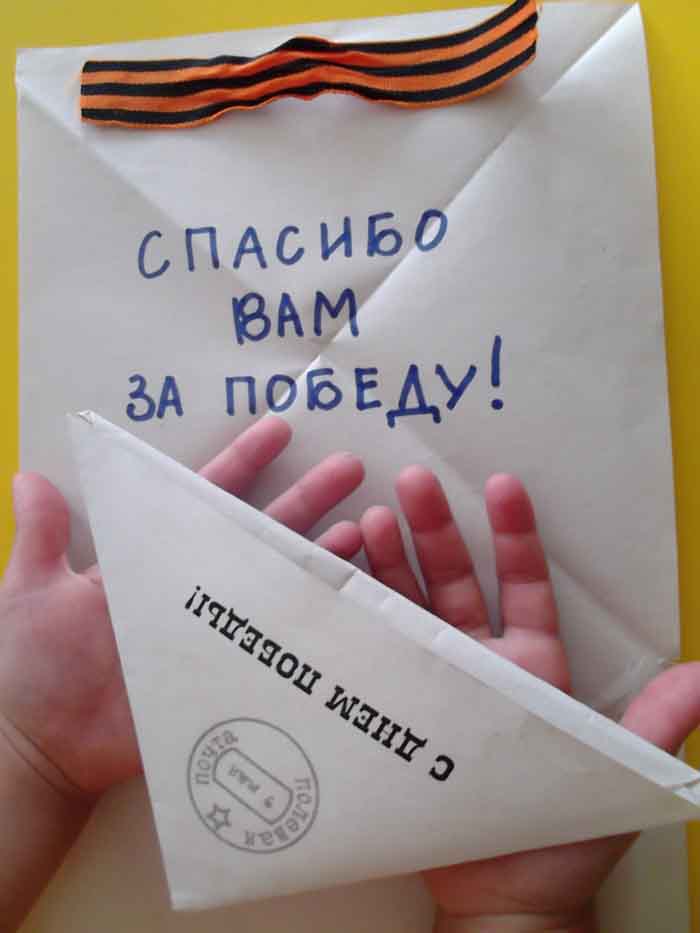 СПАСИБО
ВАМ
ЗА ПОБЕДУ!
С ДНЕМ ПОБЕДЫ!
почта
полевая
9 мая